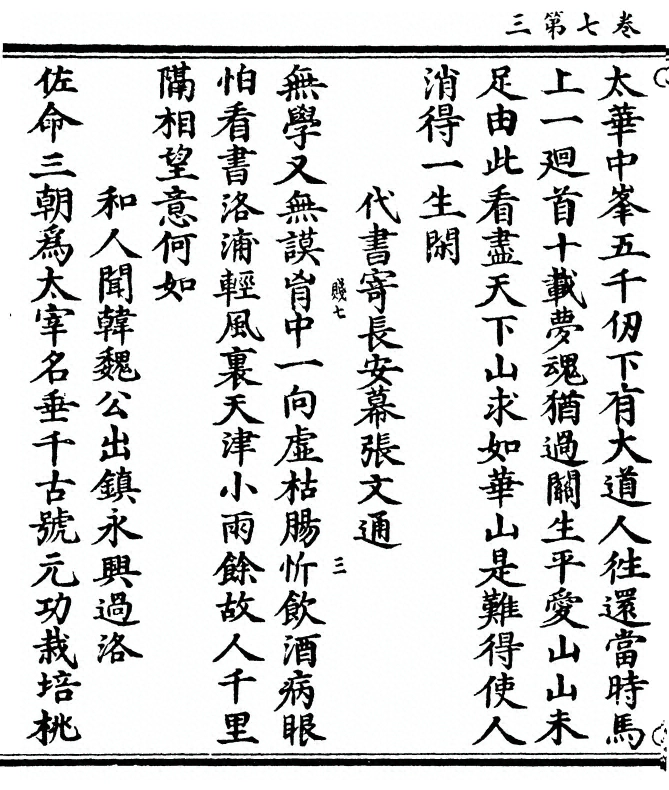 三第七卷
太華中峯五千仞下有大道人徃還當時馬
上一廻首十載夢魂猶過關生平愛山山未
足由此看盡天下山求如華山是難得使人
消得一生閑
代書寄長安幕張文通
無學又無謨胷中一向虛枯腸忻飲酒病眼
賤七
三
怕看書洛浦輕風裏天津小雨餘故人千里
隔相望意何如
和人聞韓魏公出鎮永興過洛
佐命三朝爲太宰名垂千古號元功栽培桃